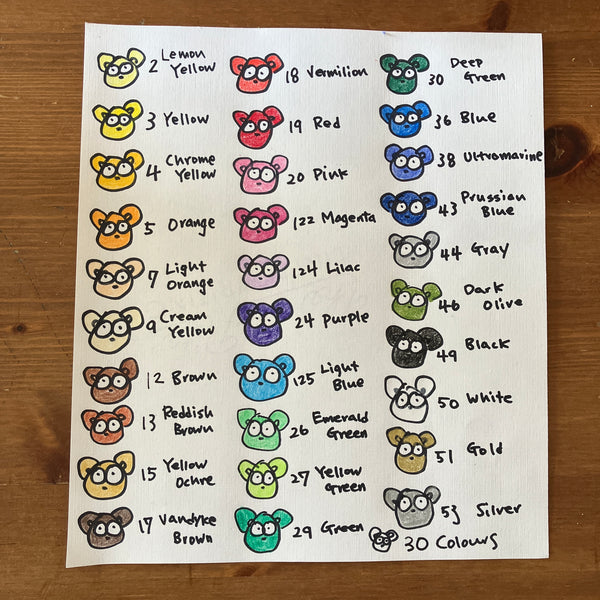 2 Lemon
Yellow
3 Yellow
4 Chrome
Yellow
5 Orange
7 Light
Orange
9 Cream
Yellow
12 Brown
13 Reddish
Brown
15 Yellow
Ochre
17 Vandyke
Brown
18 Vermilion
19 Red
20 Pink
122 Magenta
124 Lilac
24 Purple
125 Light
Blue
26 Emerald
Green
27 Yellow
Green
29 Green
30 Deep
Green
36 Blue
38 Ultramarine
43 Prussian
Blue
44 Gray
46 Dark
Olive
49 Black
50 White
51 Gold
53 Silver
30 Colours